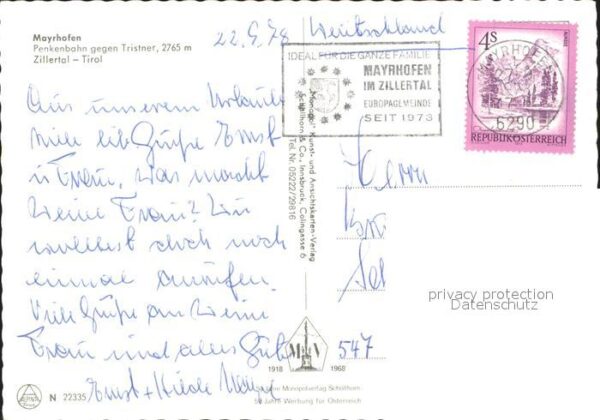 Mayrhofen
Penkenbahn gegen Tristner, 2765 m
Zillertal – Tirol
22.9.78
Deutschland
IDEAL FÜR DIE GANZE FAMILIE
MAYRHOFEN
IM ZILLERTAL
EUROPAGEMEINDE
SEIT 1973
4S
MAYRHOFEN
6290
REPUBLIK ÖSTERREICH
Aus unserem Urlaub
viele liebe Grüße Ernst
u Frau, was macht
Deine Frau? Du
wolltest doch noch
einmal anrufen.
Viele Grüße an Deine
Frau und alles Gute
Ernst + Hilde
Herrn
547
"Monopol" Kunst- und Ansichtskarten-Verlag
Schöllhorn & Co., Innsbruck, Colingasse 6
Tel. Nr. 05222/29816
privacy protection
Datenschutz
1918 MV 1968
Monopolverlag Schöllhorn
50 Jahre Werbung für Österreich
N 22335